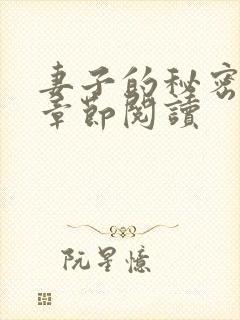 妻子的秘密
章節閱讀
阮星憶